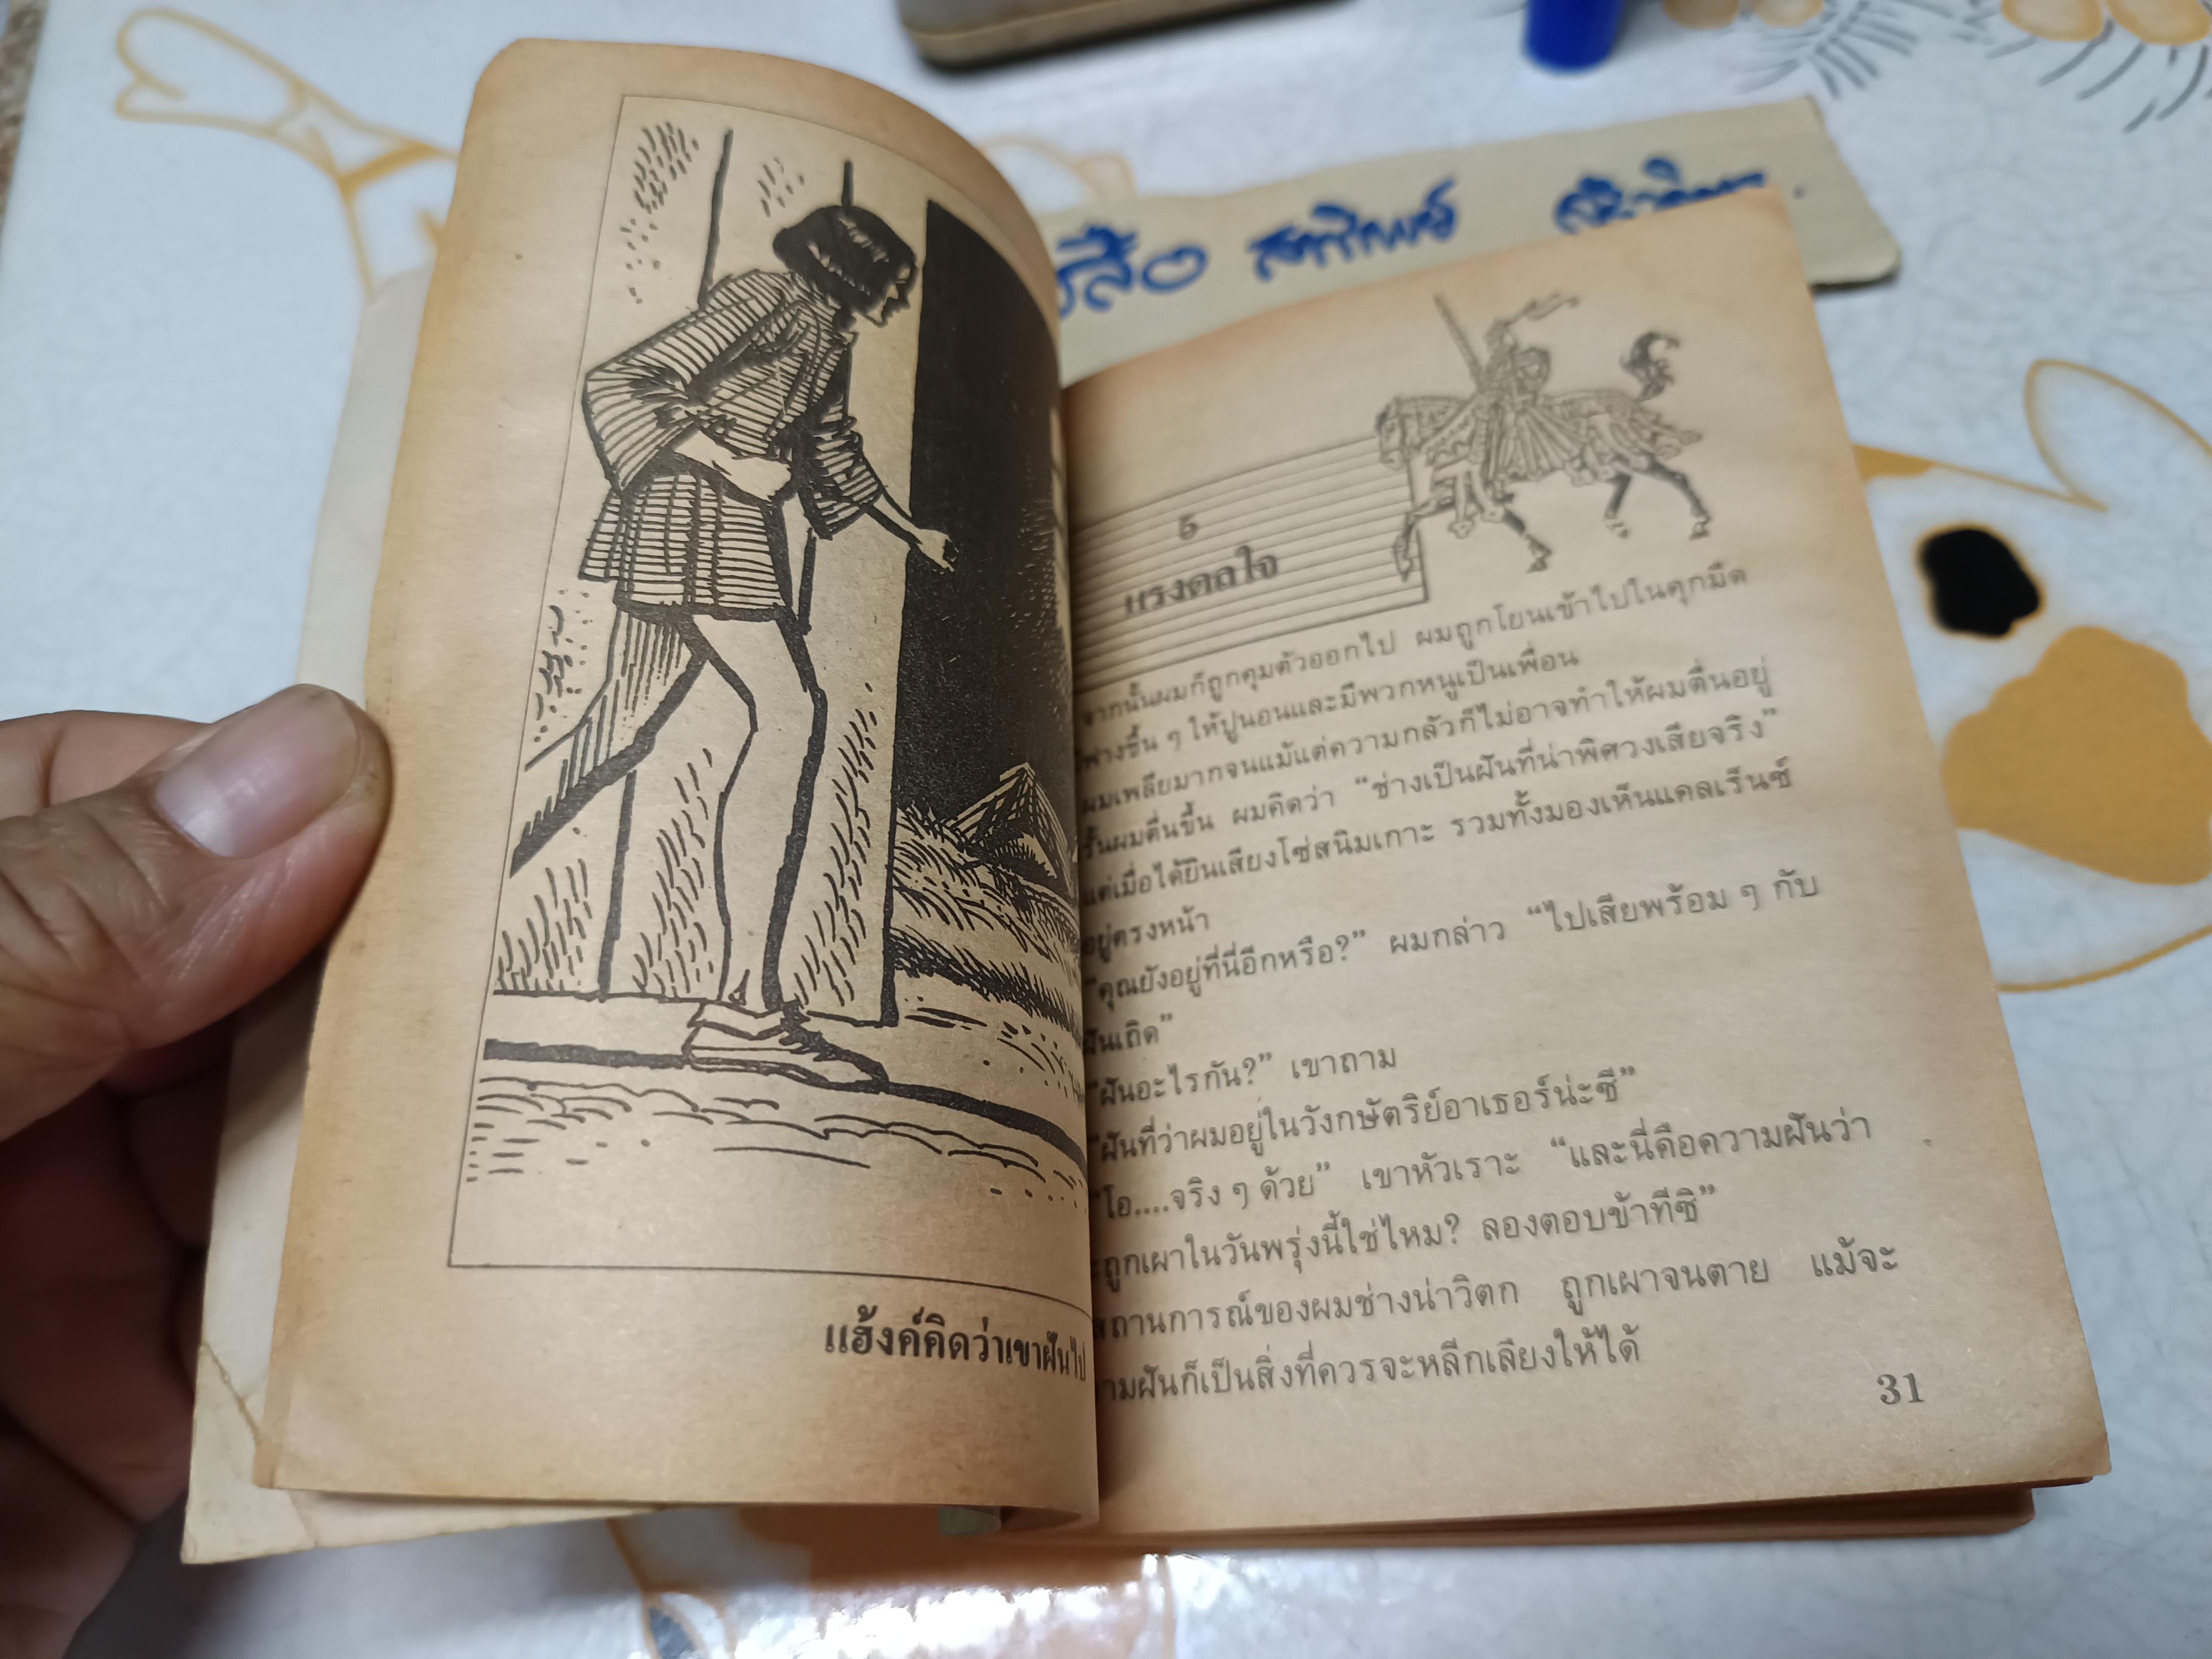 สือ สภาพนด์
5
แรงดลใจ
จากนั้นผมก็ถูกคุมตัวออกไป ผมถูกโยนเข้าไปในคุกมืด
ฟางชื้น ๆ ให้ปูนอนและมีพวกหนูเป็นเพื่อน
ผมเพลียมากจนแม้แต่ความกลัวก็ไม่อาจทำให้ผมตื่นอยู่
ผมตื่นขึ้น ผมคิดว่า “ช่างเป็นฝันที่น่าพิศวงเสียจริง”
แต่เมื่อได้ยินเสียงโซ่สนิมเกาะ รวมทั้งมองเห็นแคลเร็นซ์
อยู่ตรงหน้า
“คุณยังอยู่ที่นี่อีกหรือ?” ผมกล่าว “ไปเสียพร้อม ๆ กับ
ฝันเถิด”
“ฝันอะไรกัน?” เขาถาม
“ฝันที่ว่าผมอยู่ในวังกษัตริย์อาเธอร์น่ะซี”
“โอ....จริง ๆ ด้วย” เขาหัวเราะ “และนี่คือความฝันว่า
ถูกเผาในวันพรุ่งนี้ใช่ไหม? ลองตอบข้าทีซิ”
สถานการณ์ของผมช่างน่าวิตก ถูกเผาจนตาย แม้จะ
ามฝันก็เป็นสิ่งที่ควรจะหลีกเลี่ยงให้ได้
31
แฮ้งค์คิดว่าเขาฝันไป